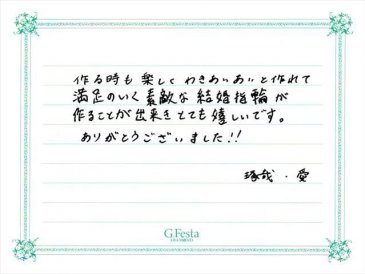 作る時も楽しくわきあいあいと作れて
満足のいく素敵な結婚指輪が
作ることが出来きとても嬉しいです。
ありがとうございました!!
琢哉・愛
G.Festa